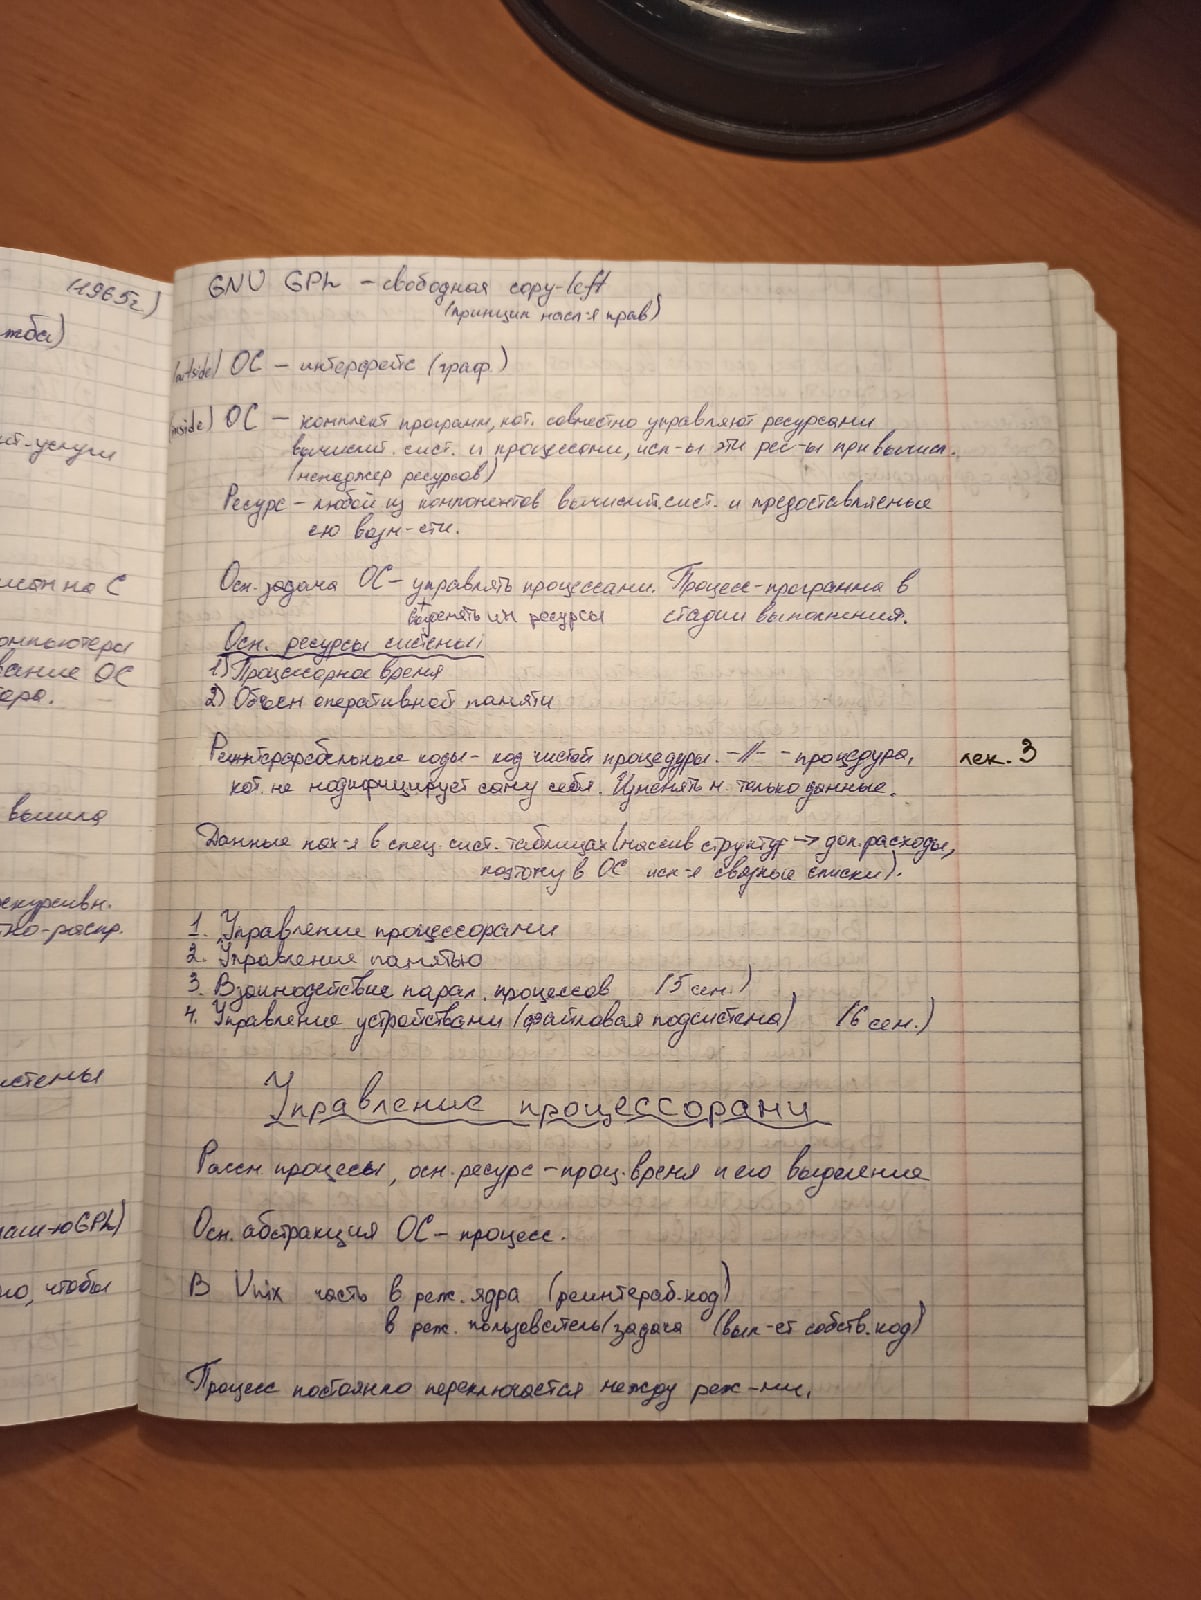 (1965г.)
жба)
нт-услуги
исан на С
омпьютеры
вание ОС
тера.
вышла
екурсивн.
тно-распр.
истемы
GPL)
но, чтобы
GNU GPL – свободная copy-left
(принцип насл-я прав)
(outside) ОС – интерфейс (граф.)
(inside) ОС – комплект программ, кот. совместно управляют ресурсами
вычислит. сист. и процессами, исп-ы эти рес-ы при вычисл.
(менеджер ресурсов)
Ресурс – любой из компонентов вычислит. сист. и предоставляемые
ею возм-сти.
Осн. задача ОС – управлять процессами. Процесс – программа в
+
выделять им ресурсы стадии выполнения.
Осн. ресурсы системы:
1) Процессорное время
2) Объем оперативной памяти
коды – код чистой процедуры. –//– – процедура, лек. 3
кот. не модифицирует саму себя. Изменять м. только данные.
Данные нах-я в спец. сист. таблицах (массив структур → доп. расходы,
поэтому в ОС исп-я связные списки).
1. Управление процессорами
2. Управление памятью
3. Взаимодействие парал. процессов (5 сем.)
4. Управление устройствами (файловая подсистема) (6 сем.)
Управление процессорами
Рассм процесы, осн. ресурс – проц. время и его выделение
Осн. абстракция ОС – процесс.
В Unix часть в реж. ядра (реинтераб. код)
в реж. пользователь/задача (вып-ет собств. код)
Процесс постоянно переключается между реж-ми.